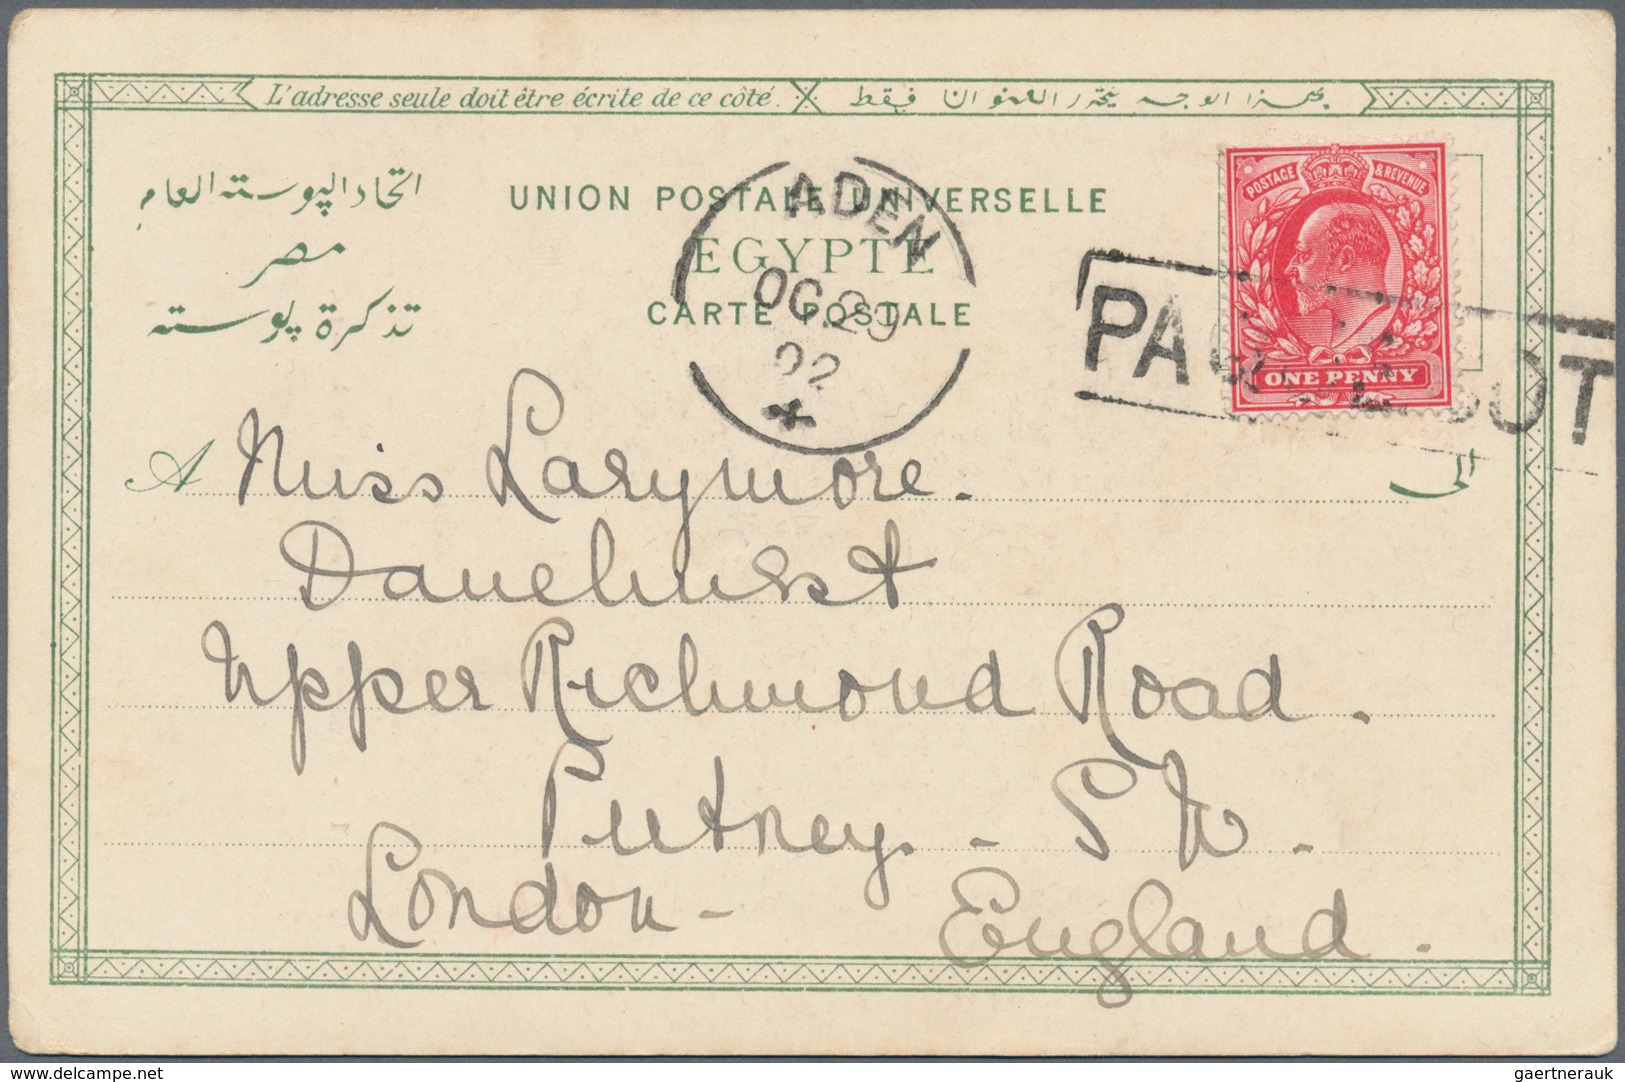 L'adresse seule doit être écrite de ce côté.
بهذا الوجه يحرر العنوان فقط
اتحاد البوسته العام
مصر
تذكرة بوسته
UNION POSTALE UNIVERSELLE
EGYPTE
CARTE POSTALE
ADEN
OC 29
02
POSTAGE & REVENUE
ONE PENNY
PAQUEBOT
A Miss Larymore.
الى
Danehurst
Upper Richmond Road.
Putney. - S W.
London -
England.
www.delcampe.net
gaertnerauk